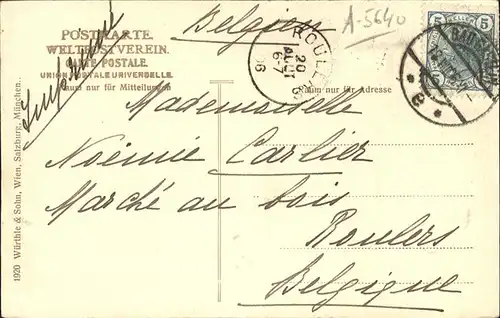 Belgien
A-5640
POSTKARTE.
WELTPOSTVEREIN.
CARTE POSTALE.
UNION POSTALE UNIVERSELLE.
Raum nur für Mitteilungen
Raum nur für Adresse
ROULE
20
AOUT
6-7
06
5 HELLER 5
BAD
8
Mademoiselle
Noémie Carlier
Marché au bois
Roulers
Belgique
1920 Würthle & Sohn, Wien, Salzburg, München.